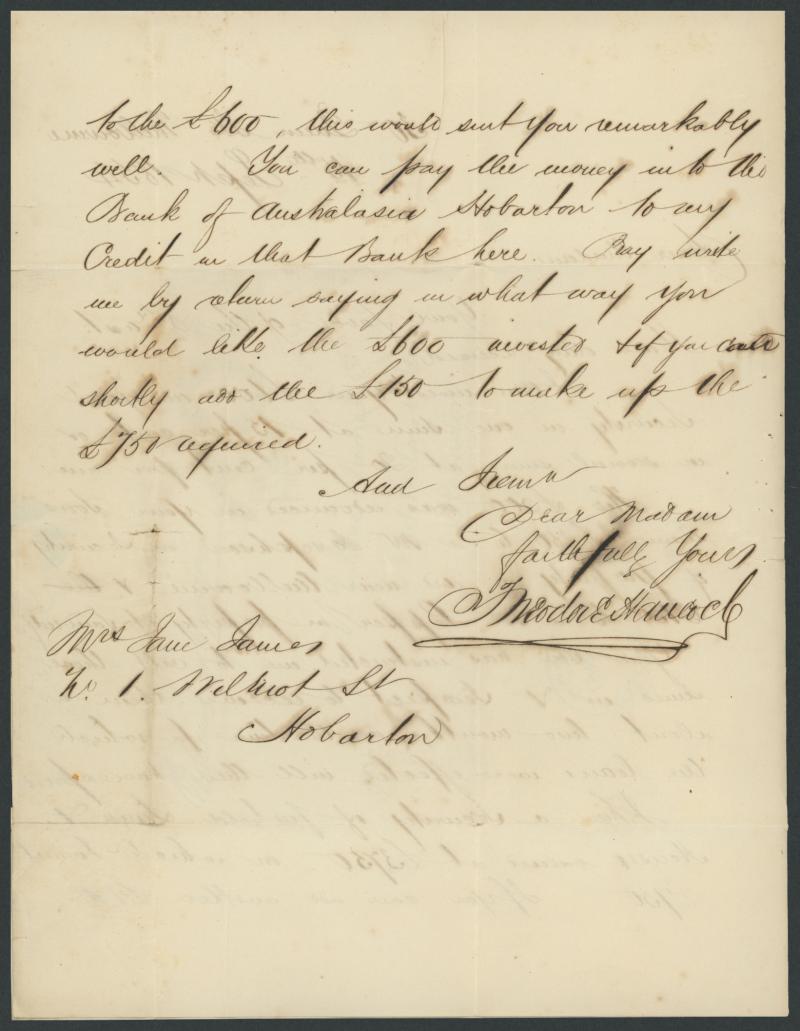 to the £600, this would suit you remarkably
well. You can pay the money into the
Bank of Australasia Hobarton to my
Credit in that Bank here. Pray write
me by return saying in what way you
would like the £600 invested & if you could
shortly add the £150 to make up the
£750 required.
And I remn
Dear Madam
faithfully Yours
Theodor E Hancock
Mrs Jane James
No. 1. Wilmot St
Hobarton